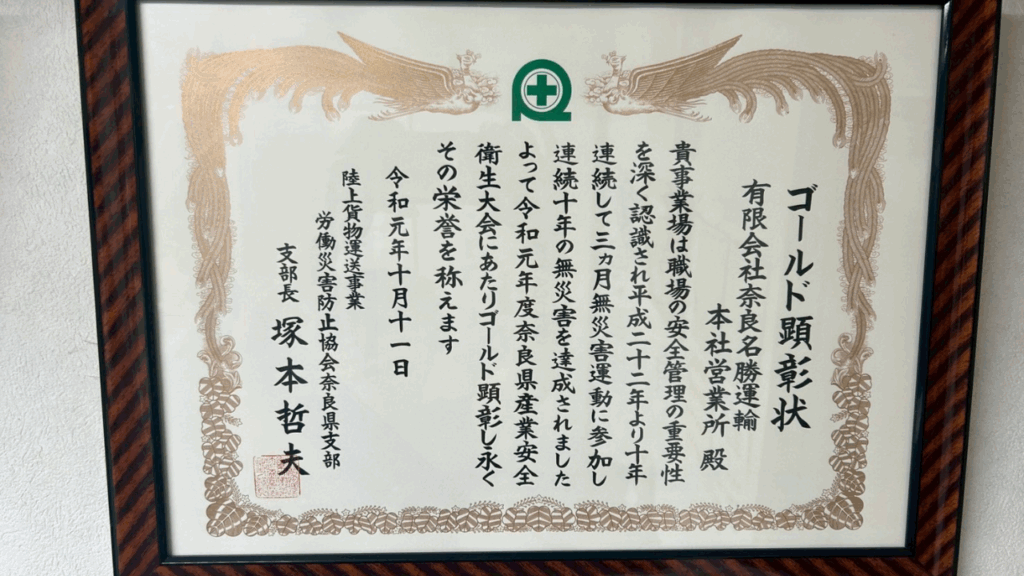 ゴールド顕彰状
有限会社奈良名勝運輸
本社営業所 殿
貴事業場は職場の安全管理の重要性
を深く認識され平成二十二年より十年
連続して三ヵ月無災害運動に参加し
連続十年の無災害を達成されました
よって令和元年度奈良県産業安全
衛生大会にあたりゴールド顕彰し永く
その栄誉を称えます
令和元年十月十一日
陸上貨物運送事業
労働災害防止協会奈良県支部
支部長 塚本哲夫